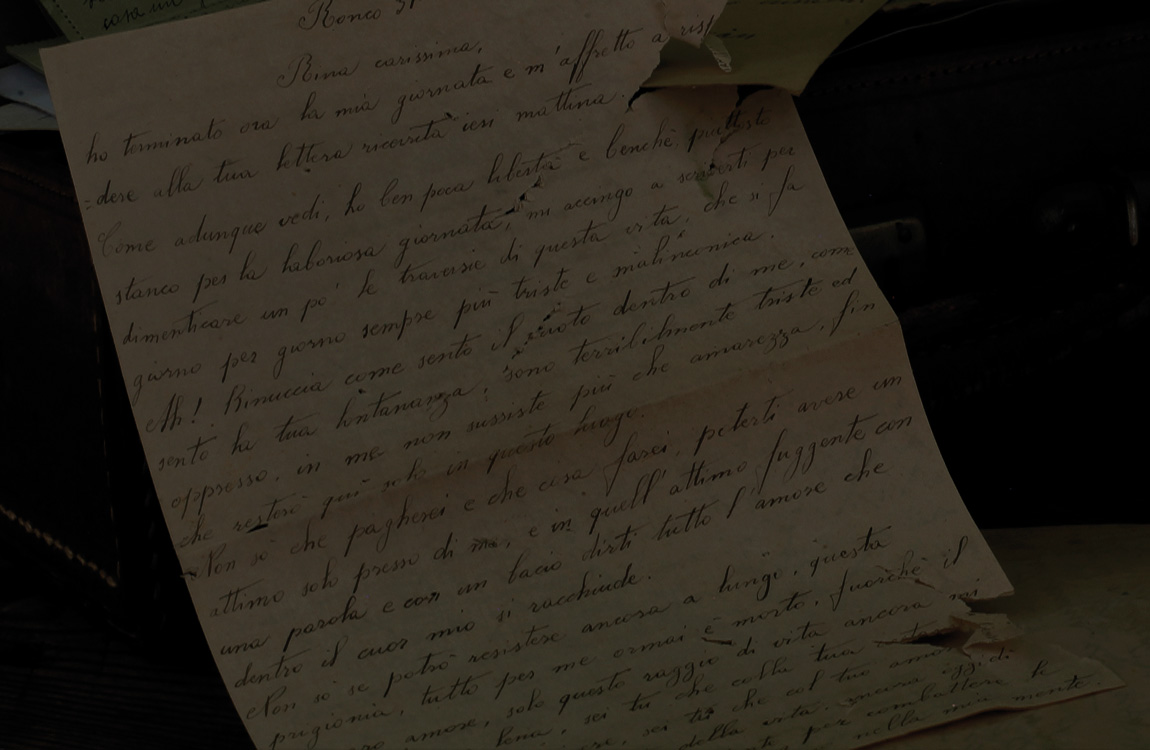 casa un
Ronco
Rina carissima,
ho terminato ora la mia giornata e m'affretto a risp
=dere alla tua lettera ricevuta ieri mattina.
Come adunque vedi, ho ben poca libertà e benchè piuttosto
stanco per la laboriosa giornata, mi accingo a scriverti per
dimenticare un po' le traversie di questa vita, che si fa
giorno per giorno sempre più triste e malinconica.
Ah! Rinuccia come sento il vuoto dentro di me, come
sento la tua lontananza, sono terribilmente triste ed
oppresso, in me non sussiste più che amarezza, fin
che resterò quì solo in questo luogo.
Non sò che pagherei e che cosa farei, poterti avere un
attimo solo presso di me, e in quell'attimo fuggente con
una parola e con un bacio dirti tutto l'amore che
dentro il cuor mio si racchiude.
Non sò se potrò resistere ancora a lungo, questa
prigionia, tutto per me ormai è morto, fuorchè il
amore, solo questo raggio di vita ancora mi
sei tu che colla tua
sei tu che col tuo
della vita, ancora oggidì
per combattere le
nella mia mente.